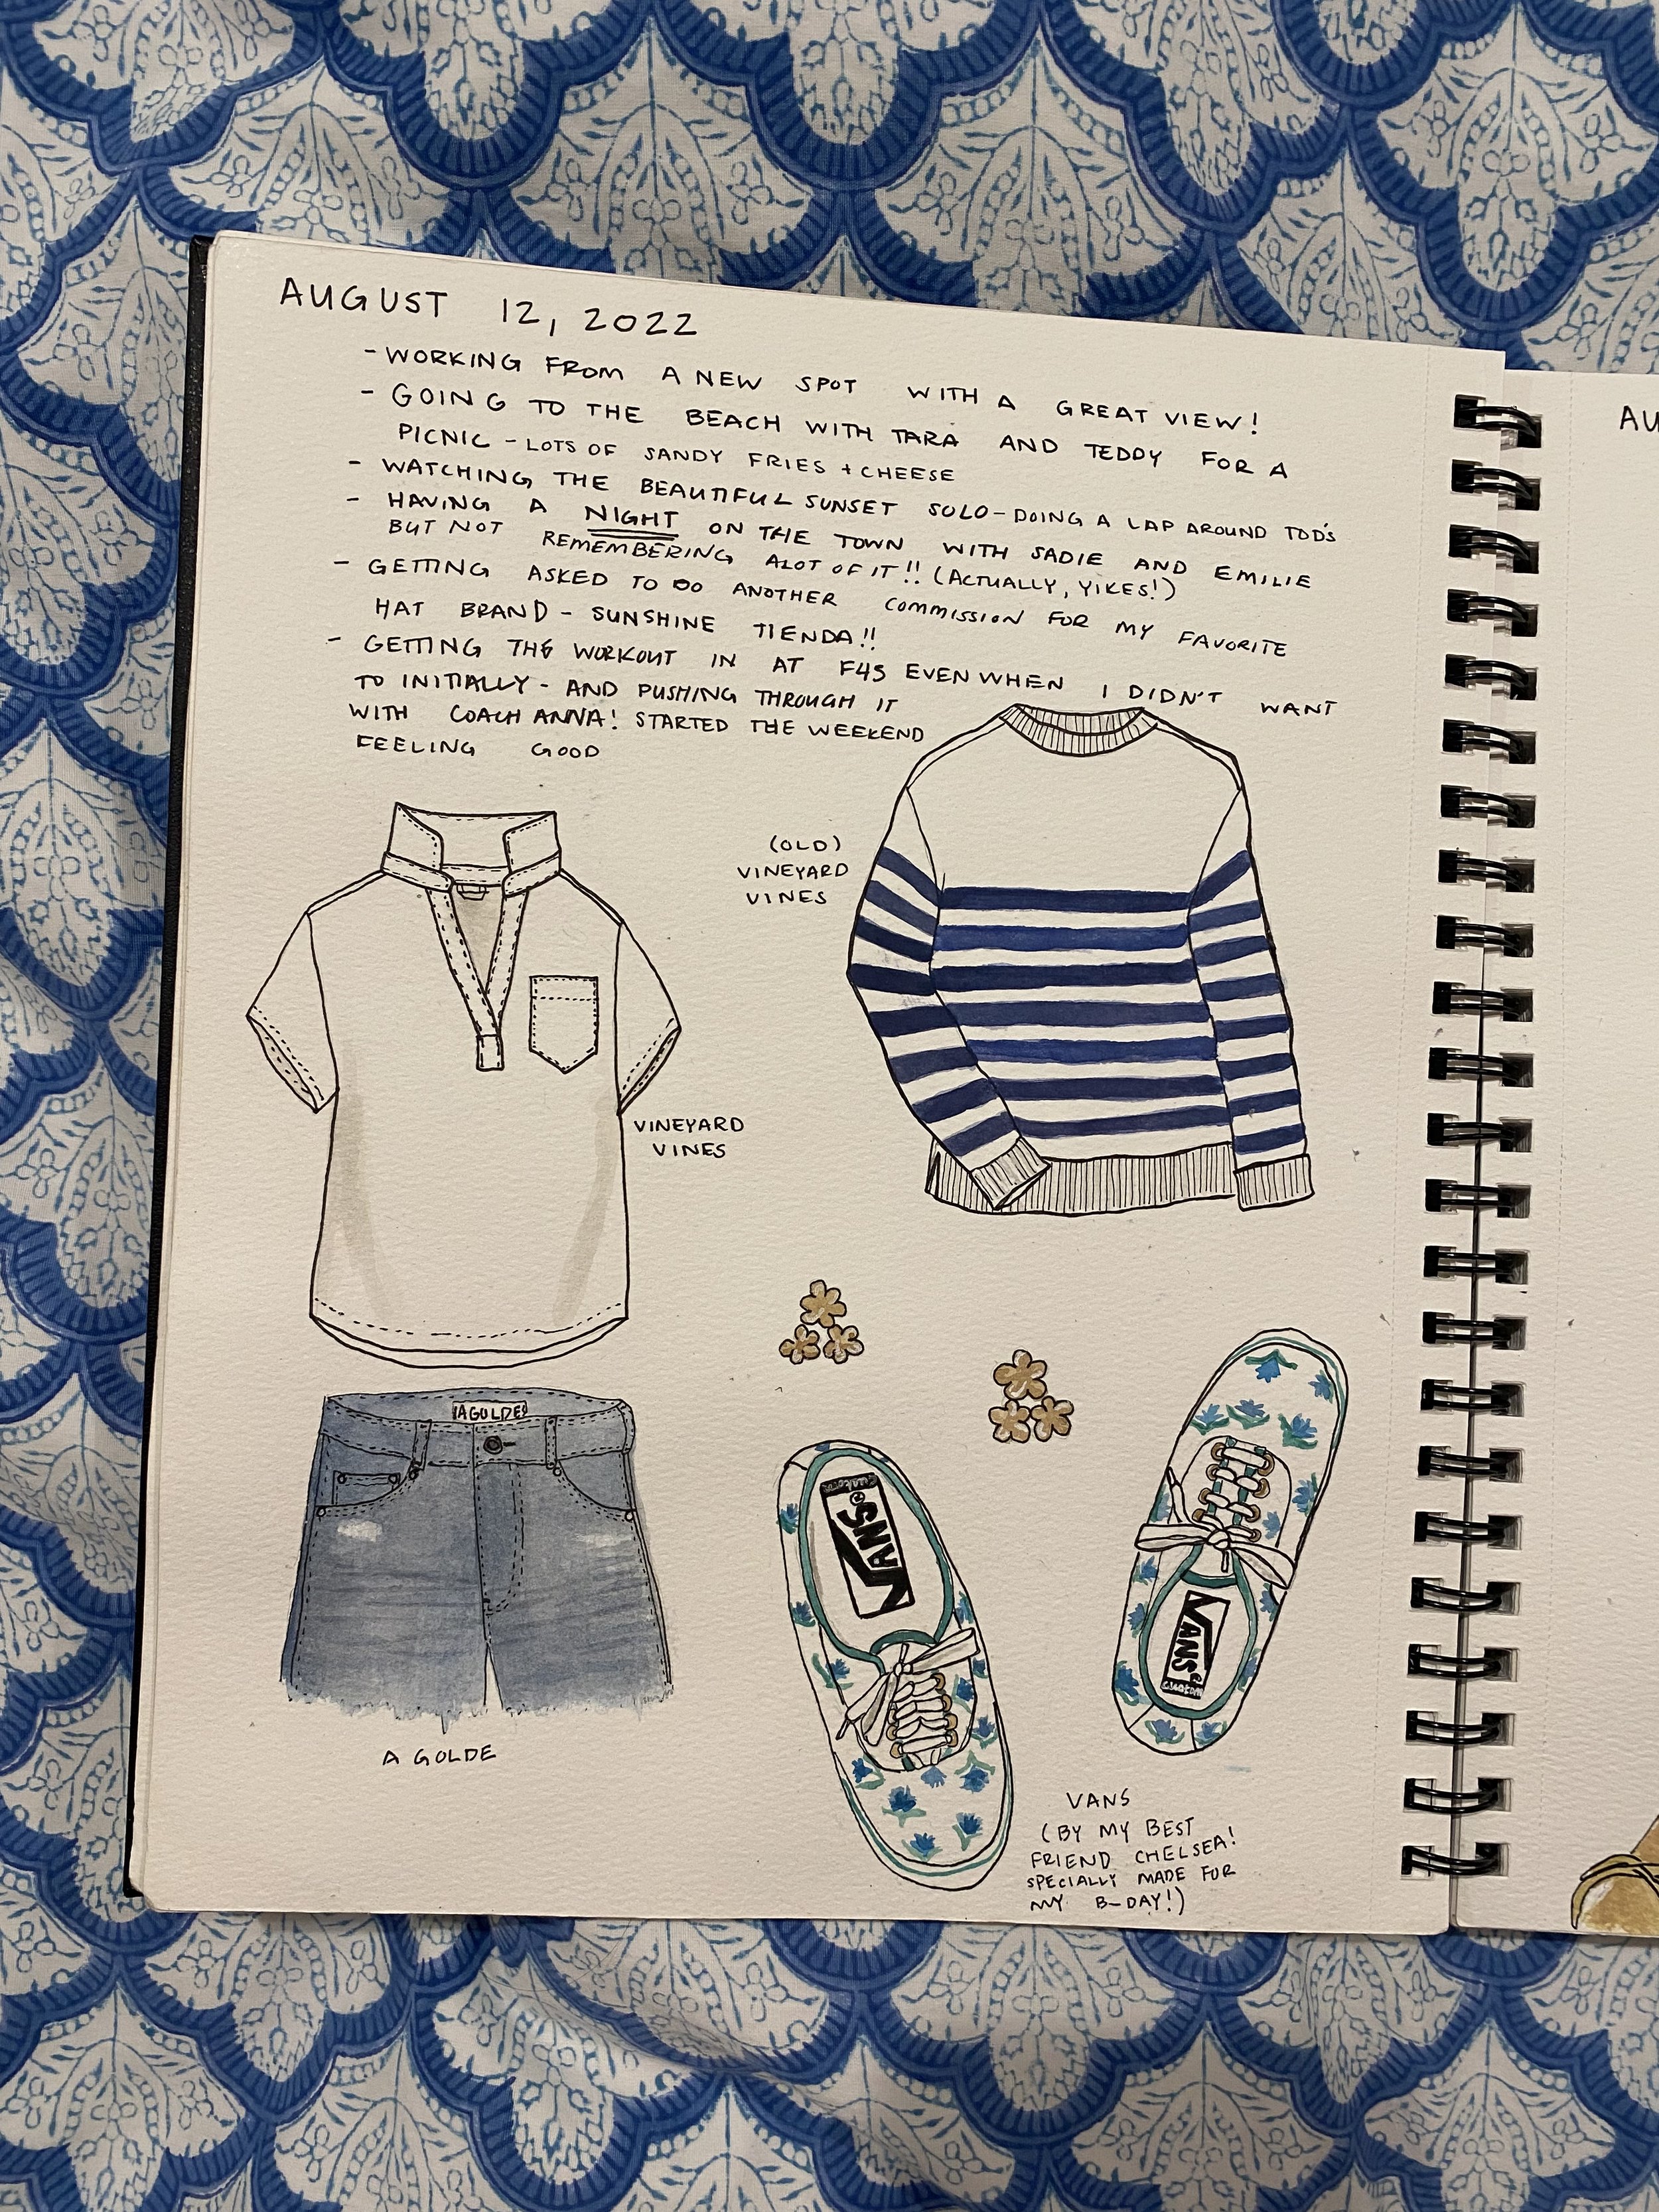 AUGUST 12, 2022
- WORKING FROM A NEW SPOT WITH A GREAT VIEW!
- GOING TO THE BEACH WITH TARA AND TEDDY FOR A
PICNIC - LOTS OF SANDY FRIES + CHEESE
- WATCHING THE BEAUTIFUL SUNSET SOLO - DOING A LAP AROUND TOD'S
- HAVING A NIGHT ON THE TOWN WITH SADIE AND EMILIE
BUT NOT REMEMBERING ALOT OF IT!! (ACTUALLY, YIKES!)
- GETTING ASKED TO DO ANOTHER COMMISSION FOR MY FAVORITE
HAT BRAND - SUNSHINE TIENDA!!
- GETTING THE WORKOUT IN AT F45 EVEN WHEN I DIDN'T WANT
TO INITIALLY - AND PUSHING THROUGH IT
WITH COACH ANNA! STARTED THE WEEKEND
FEELING GOOD
(OLD)
VINEYARD
VINES
VINEYARD
VINES
AGOLDE
A GOLDE
VANS
VANS
VANS
(BY MY BEST
FRIEND CHELSEA!
SPECIALLY MADE FOR
MY B-DAY!)
AU